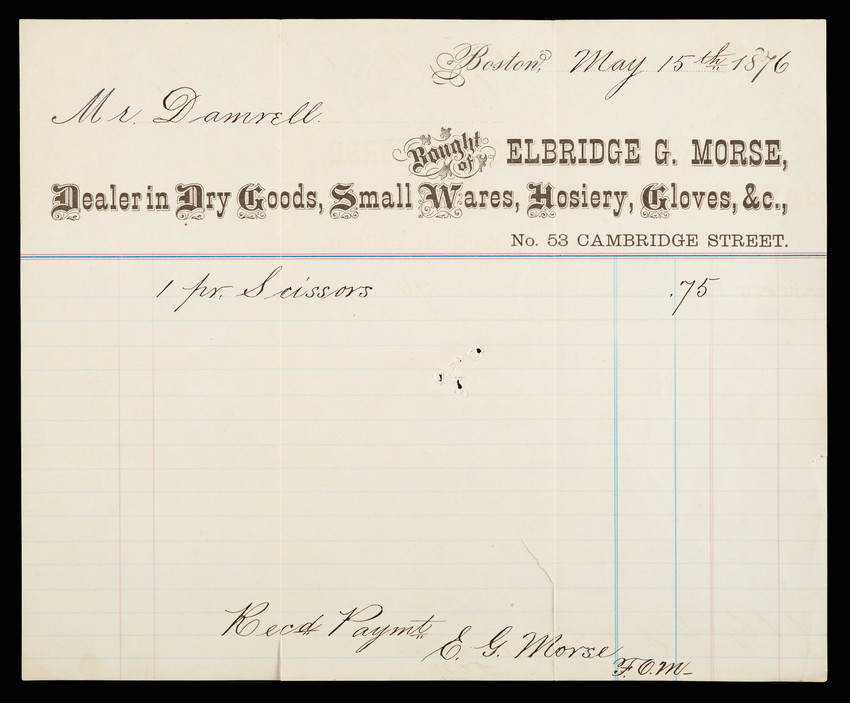 Boston, May 15th 1876
Mr. Damrell.
Bought of ELBRIDGE G. MORSE,
Dealer in Dry Goods, Small Wares, Hosiery, Gloves, &c.,
No. 53 CAMBRIDGE STREET.
1 pr. Scissors .75
Recd Paymt
E. G. Morse
F.O.M-